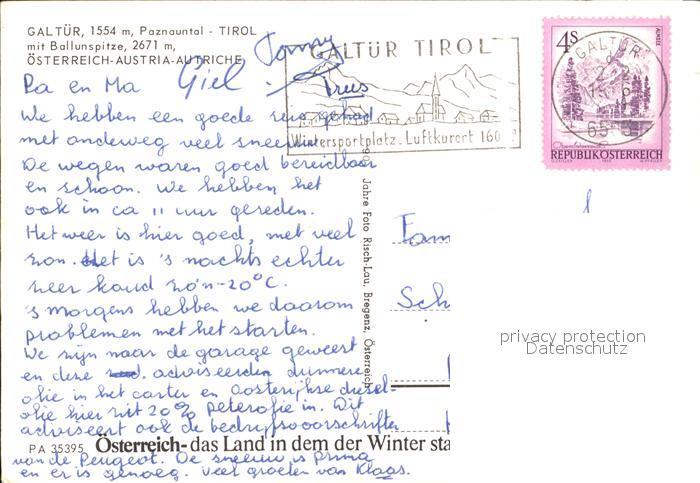 GALTÜR, 1554 m, Paznauntal - TIROL
mit Ballunspitze, 2671 m,
ÖSTERREICH-AUSTRIA-AUTRICHE
Giel
GALTÜR TIROL
Wintersportplatz. Luftkurort 160
4S
GALTÜR
REPUBLIK ÖSTERREICH
Pa en Ma
We hebben een goede reis gehad
met onderweg veel sneeuw
De wegen waren goed bereidbaar
en schoon. We hebben het
ook in ca 11 uur gereden.
Het weer is hier goed, met veel
zon. Het is 's nachts echter
zeer koud zo'n -20°C.
's morgens hebben we daarom
problemen met het starten.
We zijn naar de garage geweest
en deze adviseerden dunnere
olie in het carter en Oostenrijkse diesel-
olie hier zit 20% peterolie in. Dit
adviseert ook de bedrijfsvoorschriften
van de Peugeot. De sneeuw is prima
en er is genoeg. Veel groeten van Klaas.
Jahre Foto Risch-Lau, Bregenz, Österreich
Fam
Sch
privacy protection
Datenschutz
PA 35395 Österreich- das Land in dem der Winter sta